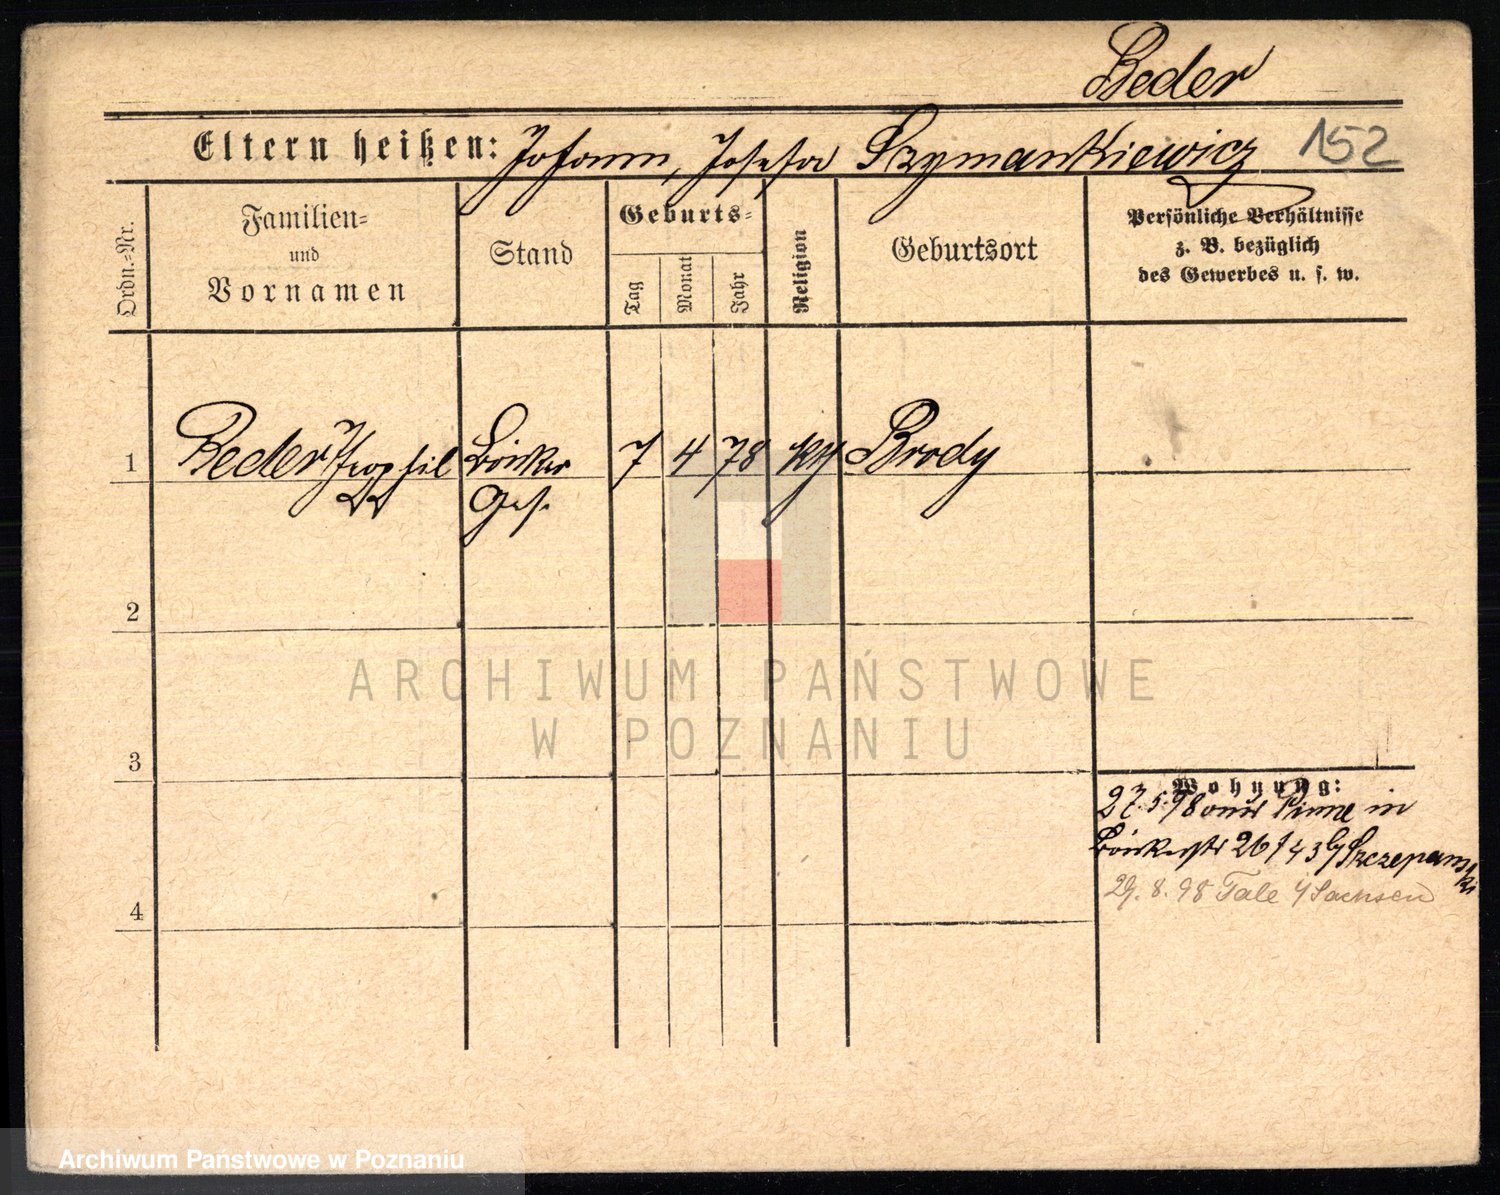 Beder
Eltern heißen: Johann, Josefa Szymankiewicz 152
Ordn.-Nr.
Familien-
und
Vornamen
Stand
Geburts-
Tag
Monat
Jahr
Religion
Geburtsort
Persönliche Verhältnisse
z. B. bezüglich
des Gewerbes u. s. w.
1 Beder Theophil Bäcker 7 4 78 kth Brody
Ges.
2
ARCHIWUM PAŃSTWOWE
W POZNANIU
3
Wohnung:
27.5.98 aus Pinne in
26/43 Szczepanski
4
29.8.98 Tale Sachsen
Archiwum Państwowe w Poznaniu